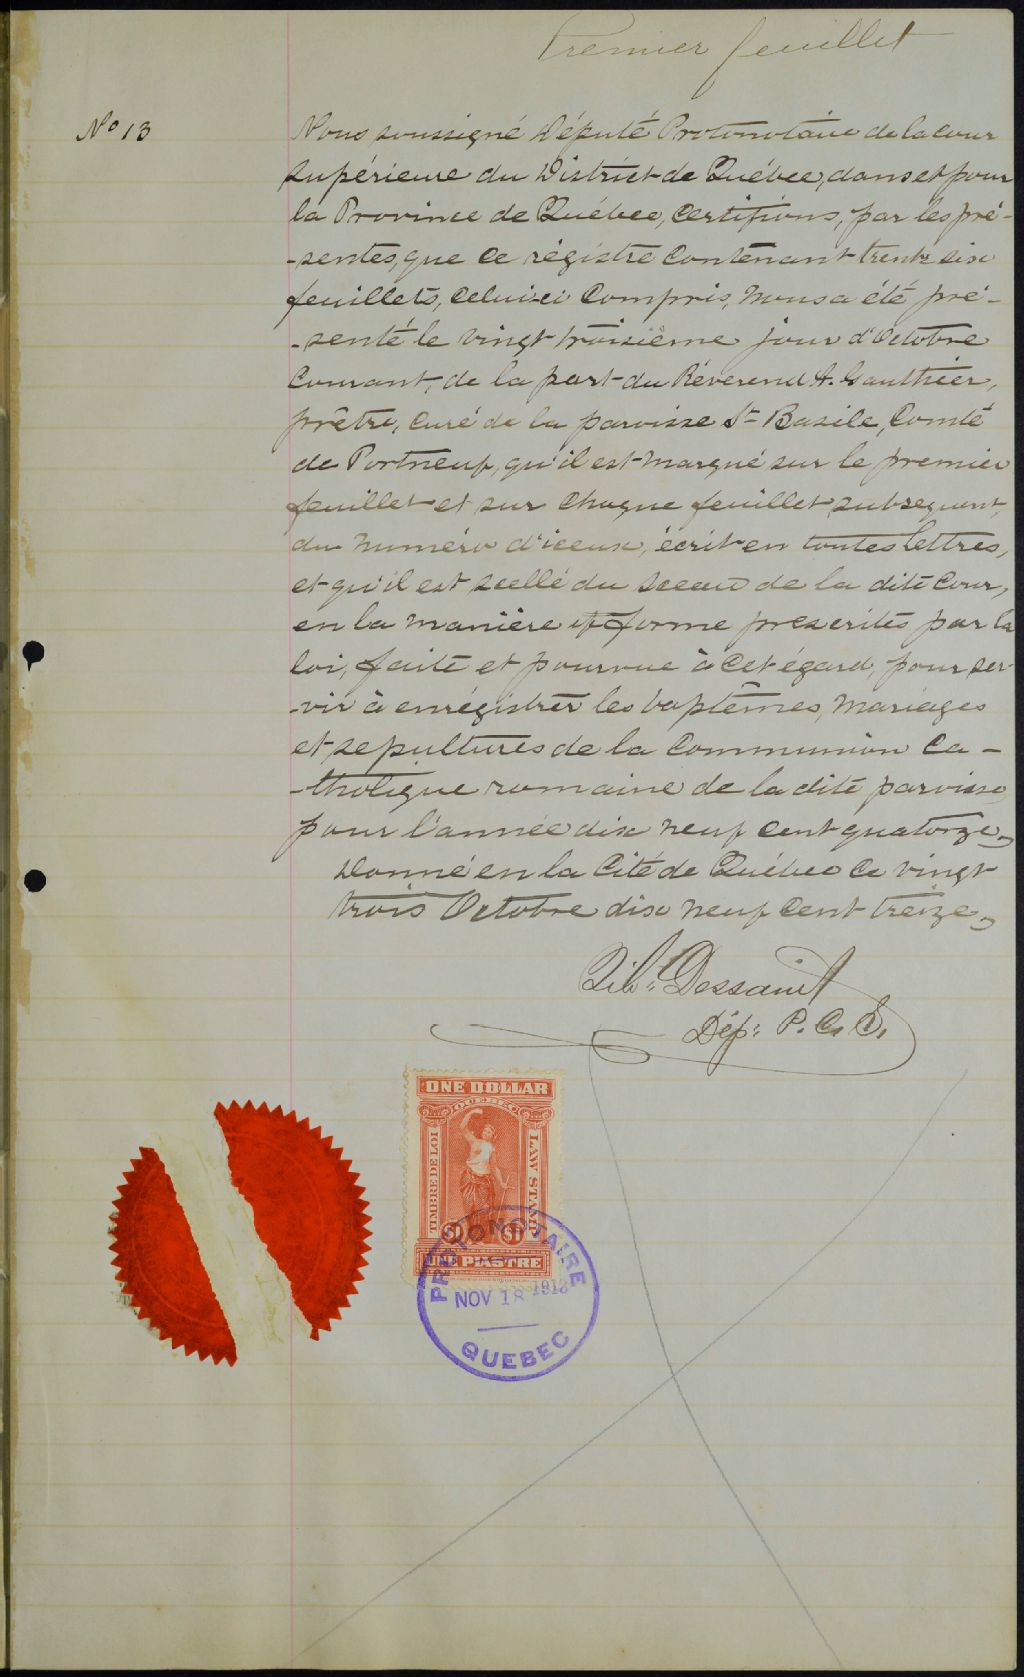 Premier feuillet
No 13
Nous soussigné Député Protonotaire de la Cour
Supérieure du District de Québec, dans et pour
la Province de Québec, Certifions, par les pré-
-sentes, que ce régistre contenant trente six
feuillets, celui-ci compris, nous a été pré-
-senté le vingt troisième jour d'Octobre
Courant, de la part du Révérend A. Gauthier,
prêtre, curé de la paroisse St Basile, Comté
de Portneuf, qu'il est marqué sur le premier
feuillet et sur chaque feuillet subsequent,
du numéro d'iceux, écrit en toutes lettres,
et qu'il est scellé du sceau de la dite Cour,
en la manière et forme prescrites par la
loi, faite et pourvue à cet égard, pour ser-
-vir à enrégistrer les baptêmes, mariages
et sépultures de la Communion Ca-
-tholique romaine de la dite paroisse
pour l'année dix neuf cent quatorze,
Donné en la Cité de Québec ce vingt
trois Octobre dix neuf cent treize,
Dessault
Dép: P. C. S.
ONE DOLLAR
QUEBEC
TIMBRE DE LOI
LAW STAMP
$1 $1
UNE PIASTRE
PROTONOTAIRE
NOV 18 1913
QUEBEC